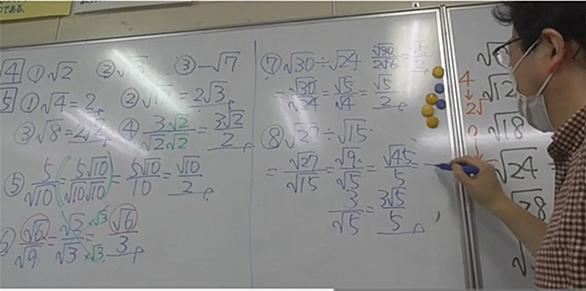 4 ① √2 ③ -√7
5 ① √4 = 2 = 2√3
③ √8 = 2√2 ④ 3√2/√2√2 = 3√2/2
⑤ 5/√10 = 5√10/√10√10 = 5√10/10 = √10/2
√6/√9 = √2/√3 ×√3 ×√3 = √6/3
⑦ √30 ÷ √24 √30/2√6 = √5/2
= √30/√24 = √5/√4 = √5/2
⑧ √27 ÷ √15
= √27/√15 = √9/√5 = √45/5 =
3/√5 = 3√5/5
4
2√
√18
√24